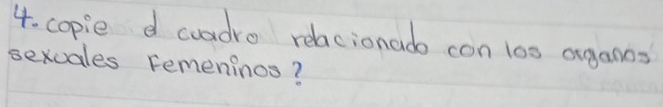 4. copie d cuadro relacionado con los organos
sexuales Femeninos?